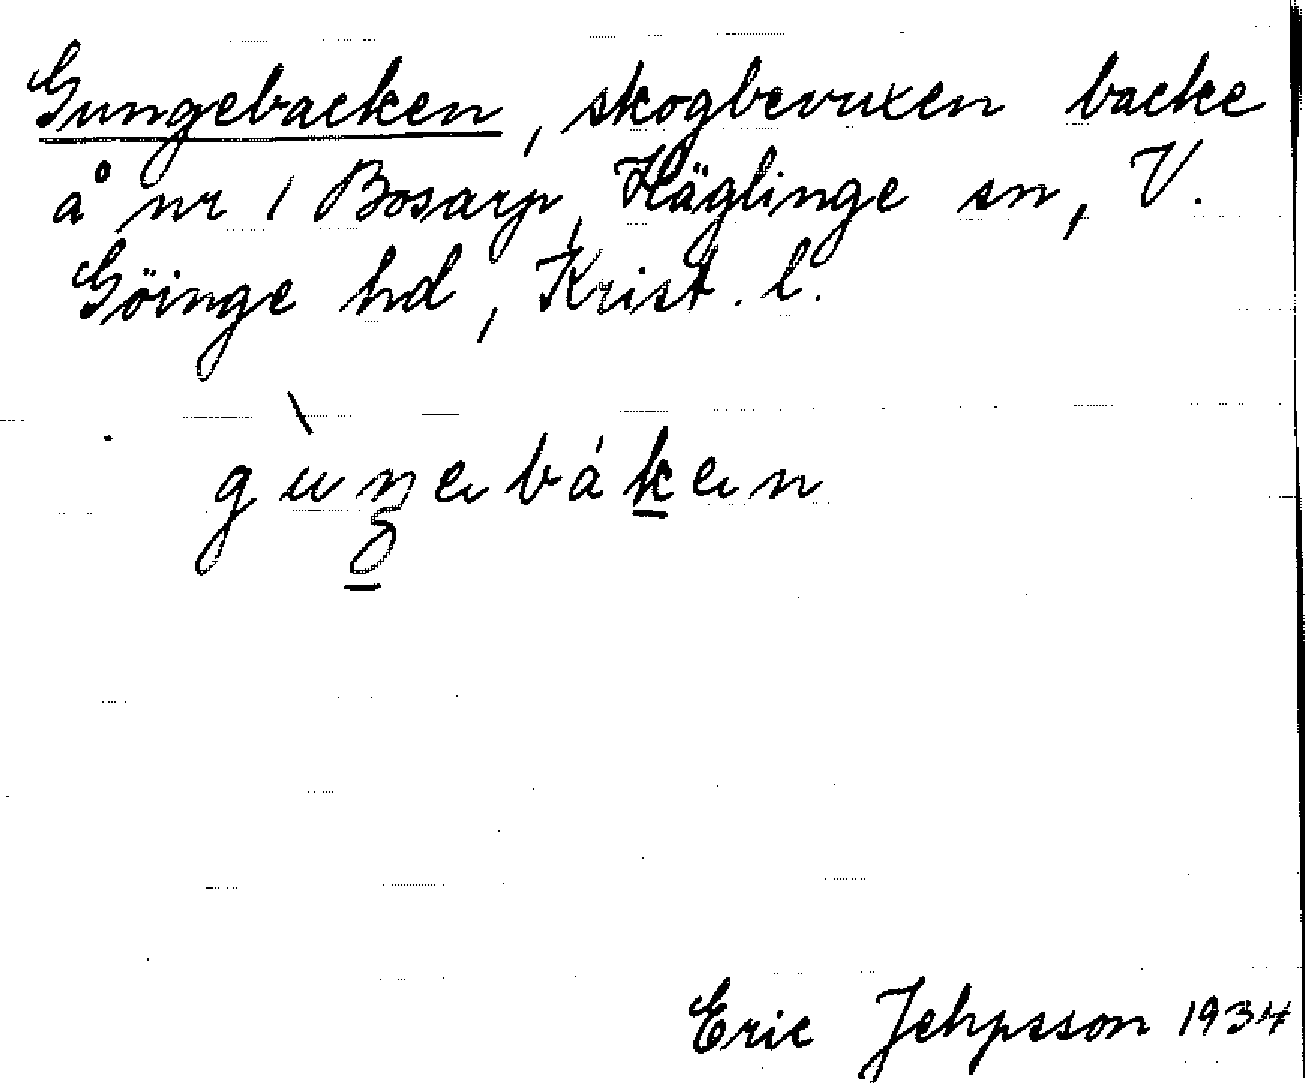 Gungebacken, skogbevuxen backe
å nr 1 Bosarp, Häglinge sn, V.
Göinge hd, Krist. l.
gùŋəbákən
Eric Jehpsson 1934